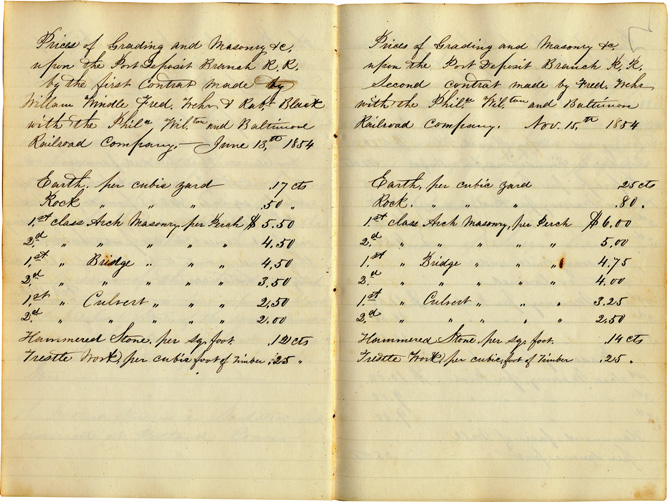 Prices of Grading and Masonry &c,
upon the Port Deposit Branch R. R.
by the first Contrat made by
Willam Windle Fred. Wehr & Rabt Black
with the Phila Wil.ton and Baltimore
Railroad Company,— June 13,th 1854
Earth, per cubic yard .17 cts
Rock „ „ .50 „
1.st class Arch Masonry, per Perch $ 5.50
2.d „ „ „ „ „ 4.50
1.st „ Bridge „ „ „ 4,50
2.d „ „ „ „ „ 3.50
1.st „ Culvert „ „ „ 2,50
2.d „ „ „ „ „ 2.00
Hammered Stone, per sq. foot .12 cts
Trestle Work, per cubic foot of Timber .25 „
Prices of Grading and Masonry &c
upon the Port Deposit Branch R, R,
Second contrat made by Fred. Wehr
with the Phila Wil.ton and Baltimore
Railroad Company. Nov. 15,th 1854
Earth, per cubic yard .25 cts
Rock. „ „ .80 „
1.st class Arch Masonry, per Perch $ 6.00
2.d „ „ „ „ „ 5,00
1.st „ Bridge „ „ „ 4.75
2.d „ „ „ „ „ 4.00
1.st „ Culvert „ „ „ 3.25
2.d „ „ „ „ „ 2,50
Hammered Stone, per sq. foot. .14 cts
Trestle Work, per cubic, foot of Timber .25 „